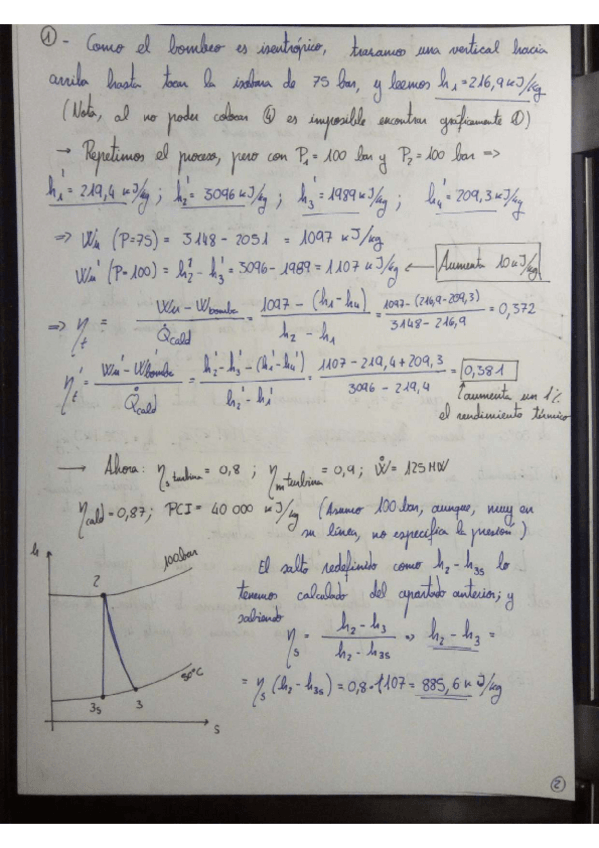 ① - Como el bombeo es isentrópico, trazamos una vertical hacia
arriba hasta tocar la isobara de 75 bar, y leemos h₁ = 216,9 kJ/kg
(Nota, al no poder colocar ④ es imposible encontrar gráficamente ①)
→ Repetimos el proceso, pero con P₁ = 100 bar y P₂ = 100 bar ⇒
h₁' = 219,4 kJ/kg ; h₂' = 3096 kJ/kg ; h₃' = 1989 kJ/kg ; h₄' = 209,3 kJ/kg
⇒ Wu (P=75) = 3148 - 2051 = 1097 kJ/kg
Wu' (P=100) = h₂' - h₃' = 3096 - 1989 = 1107 kJ/kg ← Aumenta 10 kJ/kg
⇒ η_t = (Wu - Wbomba) / Q̇cald = (1097 - (h₁ - h₄)) / (h₂ - h₁) = (1097 - (216,9 - 209,3)) / (3148 - 216,9) = 0,372
η_t' = (Wu' - W'bomba) / Q̇cald = (h₂' - h₃' - (h₁' - h₄')) / (h₂' - h₁') = (1107 - 219,4 + 209,3) / (3096 - 219,4) = 0,381
↑ aumenta un 1%
el rendimiento térmico
→ Ahora: η_s turbina = 0,8 ; η_m turbina = 0,9 ; Ẇ = 125 MW
η_cald = 0,87 ; PCI = 40 000 kJ/kg (Asumo 100 bar, aunque, muy en
su línea, no especifica la presión)
h
100bar
2
50°C
3s
3
s
El salto redefinido como h₂ - h₃s lo
tenemos calculado del apartado anterior; y
sabiendo
η_s = (h₂ - h₃) / (h₂ - h₃s) ⇒ h₂ - h₃ =
= η_s (h₂ - h₃s) = 0,8 · 1107 = 885,6 kJ/kg
②